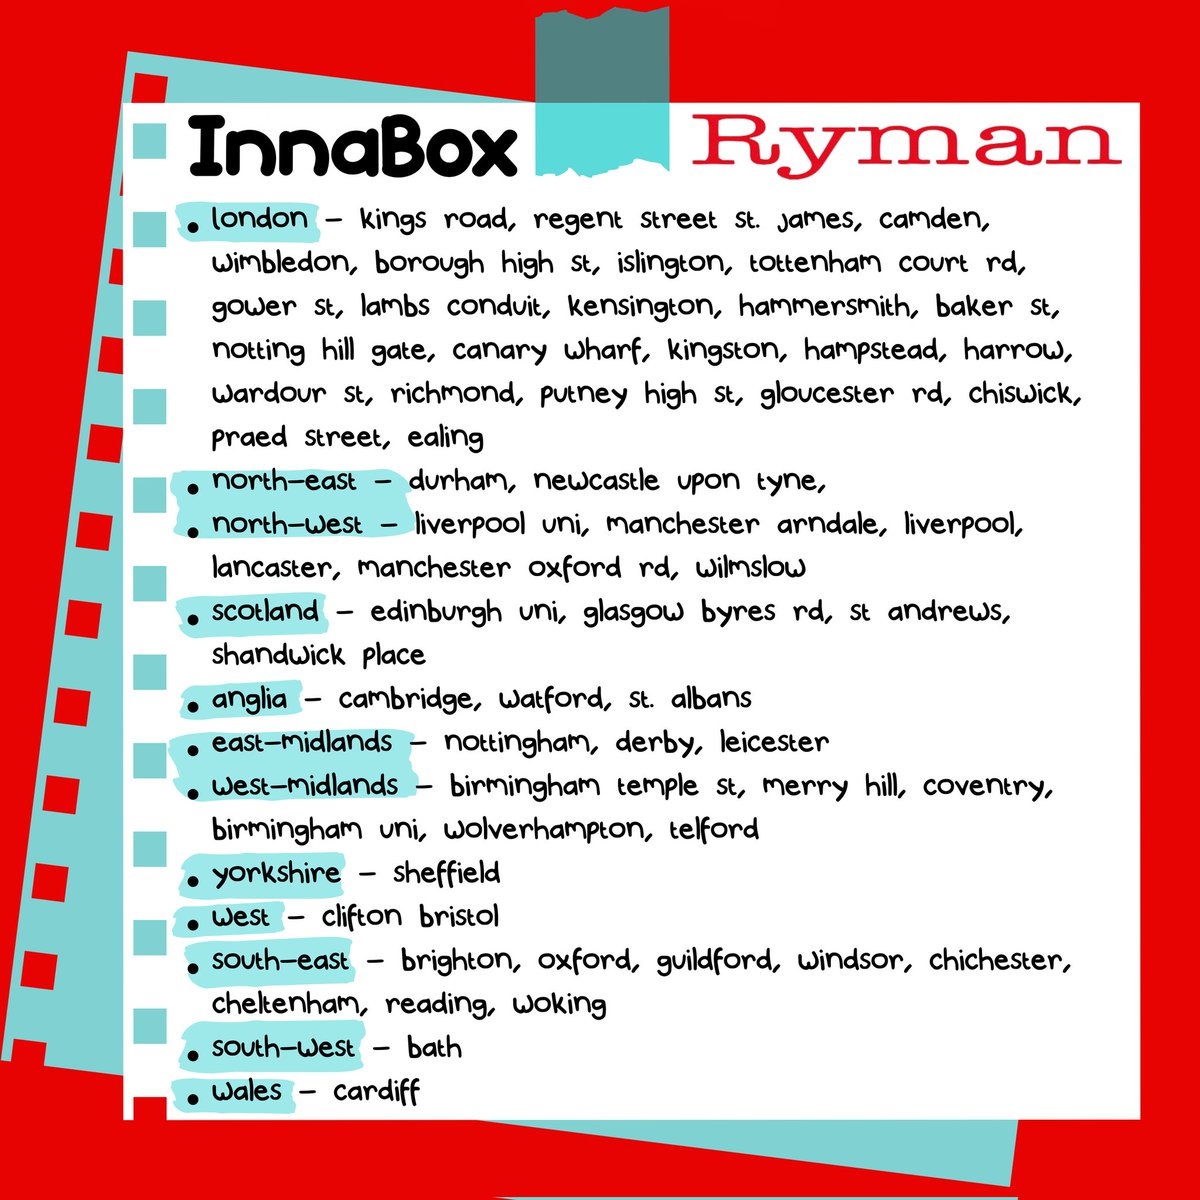 InnaBox Ryman
• london – kings road, regent street st. james, camden,
wimbledon, borough high st, islington, tottenham court rd,
gower st, lambs conduit, kensington, hammersmith, baker st,
notting hill gate, canary wharf, kingston, hampstead, harrow,
wardour st, richmond, putney high st, gloucester rd, chiswick,
praed street, ealing
• north-east – durham, newcastle upon tyne,
• north-west – liverpool uni, manchester arndale, liverpool,
lancaster, manchester oxford rd, wilmslow
• scotland – edinburgh uni, glasgow byres rd, st andrews,
shandwick place
• anglia – cambridge, watford, st. albans
• east-midlands – nottingham, derby, leicester
• west-midlands – birmingham temple st, merry hill, coventry,
birmingham uni, wolverhampton, telford
• yorkshire – sheffield
• west – clifton bristol
• south-east – brighton, oxford, guildford, windsor, chichester,
cheltenham, reading, woking
• south-west – bath
• wales – cardiff